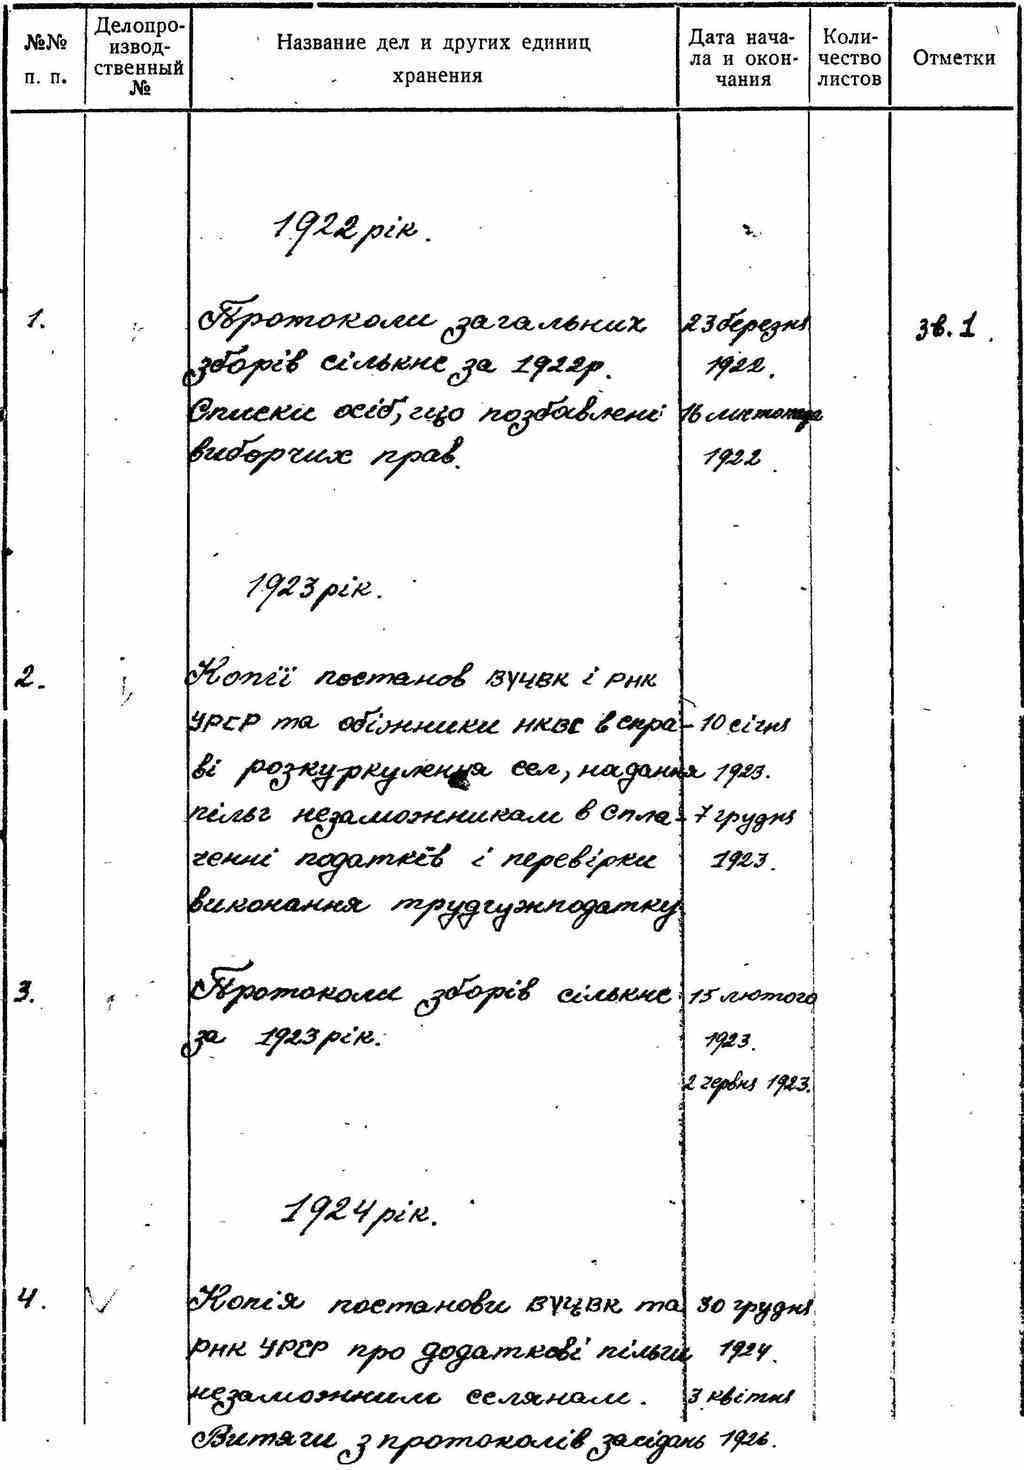 №№ п. п.
Делопро-
извод-
ственный
№
Название дел и других единиц
хранения
Дата нача-
ла и окон-
чания
Коли-
чество
листов
Отметки
1922 рік.
1. Протоколи загальних 23 березня зв. 1.
зборів сількнс за 1922р. 1922.
Списки осіб, що позбавлені 16 листопада
виборчих прав. 1922.
1923 рік.
2. Копії постанов ВУЦВК і РНК
УРСР та обіжники НКВС в спра- 10 січня
ві розкуркулення сел, надання 1923.
пільг незаможникам в спла- 7 грудня
ченні податків і перевірки 1923.
виконання трудгужподатку
3. Протоколи зборів сількнс 15 лютого
за 1923 рік. 1923.
2 червня 1923.
1924 рік.
4. Копія постанови ВУЦВК та 30 грудня
РНК УРСР про додаткові пільги 1924.
незаможним селянам. 3 квітня
Витяги з протоколів засідань 1926.